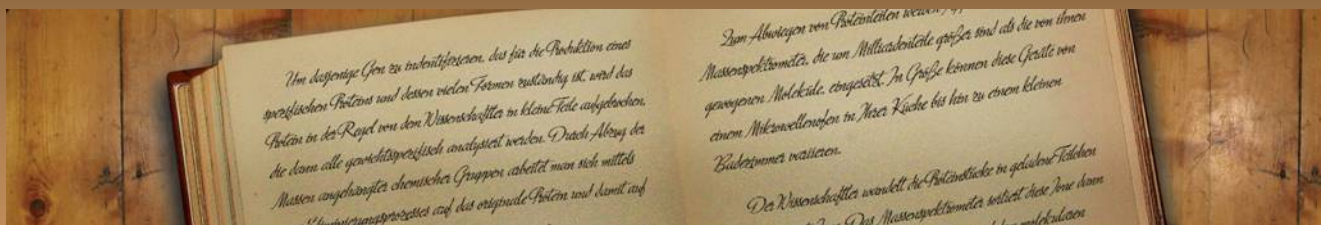 Um dasjenige Gen zu indentifizieren, das für die Produktion eines
spezifischen Proteins und dessen vielen Formen zuständig ist, wird das
Protein in der Regel von dem Wissenschaftler in kleine Teile aufgebrochen,
die dann alle gewichtsspezifisch analysiert werden. Durch Abzug der
Massen angehängter chemischer Gruppen arbeitet man sich mittels
auf das originale Protein und damit auf
Zum Abwiegen von Proteinteilen werden
Massenspektrometer, die um Milliardenteile größer sind als die von ihnen
gewogenen Moleküle, eingesetzt. In Größe können diese Geräte von
einem Mikrowellenofen in Ihrer Küche bis hin zu einem kleinen
Badezimmer variieren.
Der Wissenschaftler wandelt die Proteinstücke in geladene Teilchen
Das Massenspektrometer sortiert diese Ione dann
molekularen